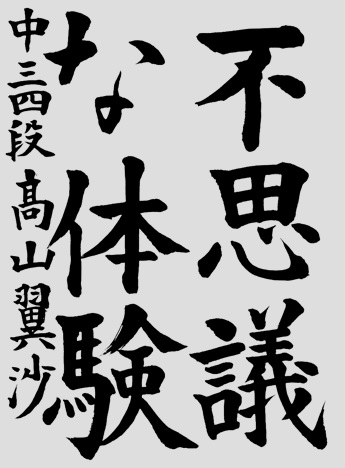 不思議
な体験
中三四段 髙山翼沙